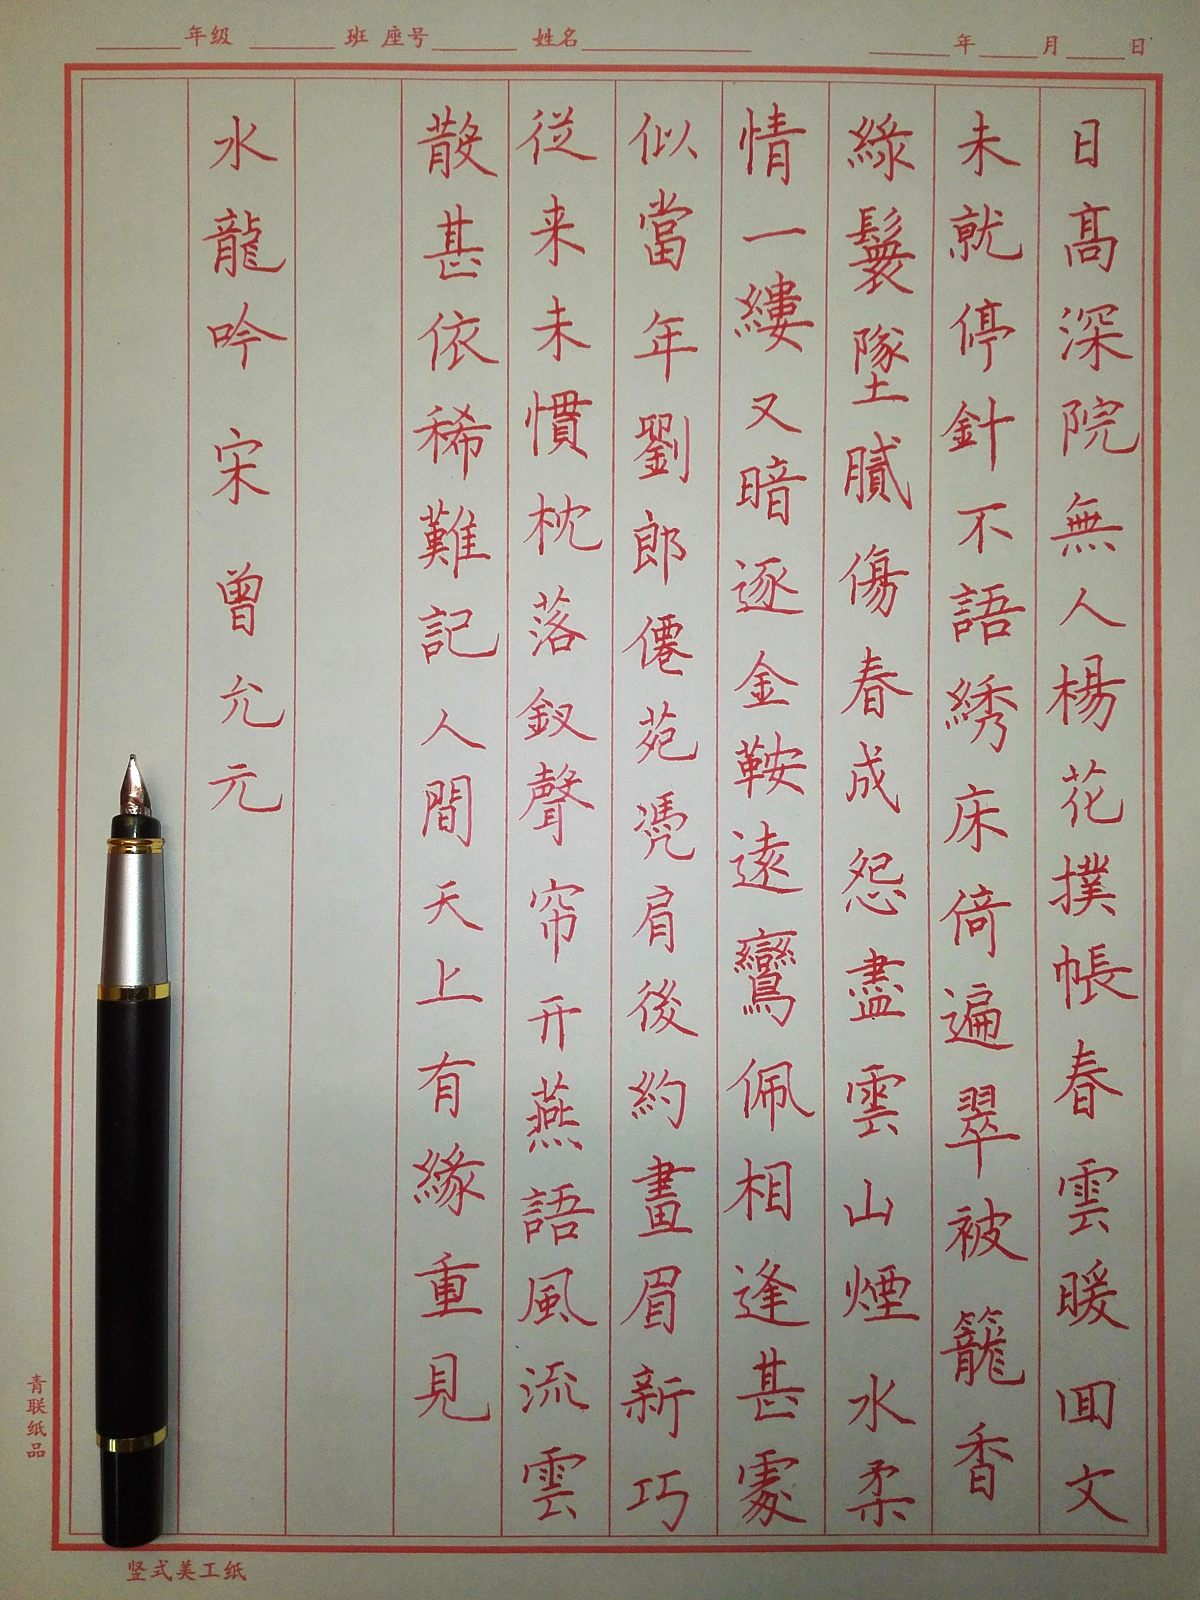 年级 班 座号 姓名 年 月 日
日高深院無人楊花撲帳春雲暖回文
未就停針不語綉床倚遍翠被籠香
綠鬟墜膩傷春成怨盡雲山煙水柔
情一縷又暗逐金鞍遠鸞佩相逢甚處
似當年劉郎僊苑凭肩後約畫眉新巧
從来未慣枕落釵聲帘开燕語風流雲
散甚依稀難記人間天上有緣重見
水龍吟 宋 曾允元
青联纸品
竖式美工纸